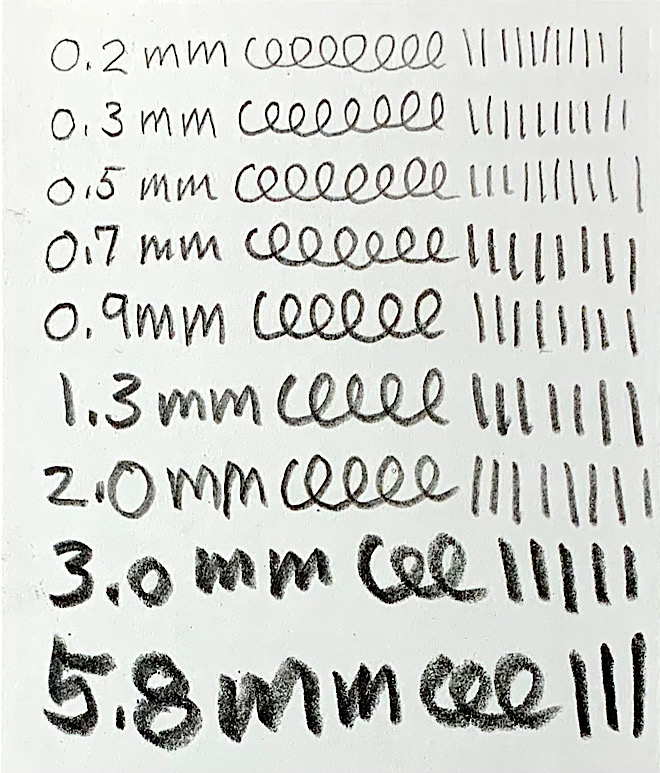 0.2 mm
0.3 mm
0.5 mm
0.7 mm
0.9mm
1.3 mm
2.0 mm
3.0 mm
5.8 mm